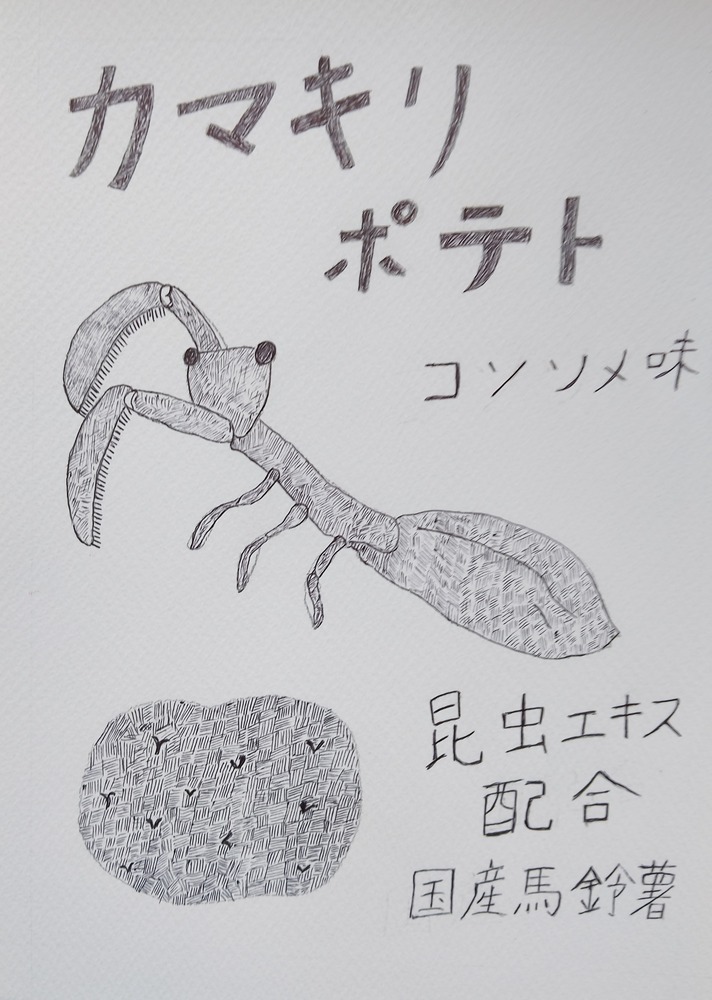 カマキリ
ポテト
コンソメ味
昆虫エキス
配合
国産馬鈴薯